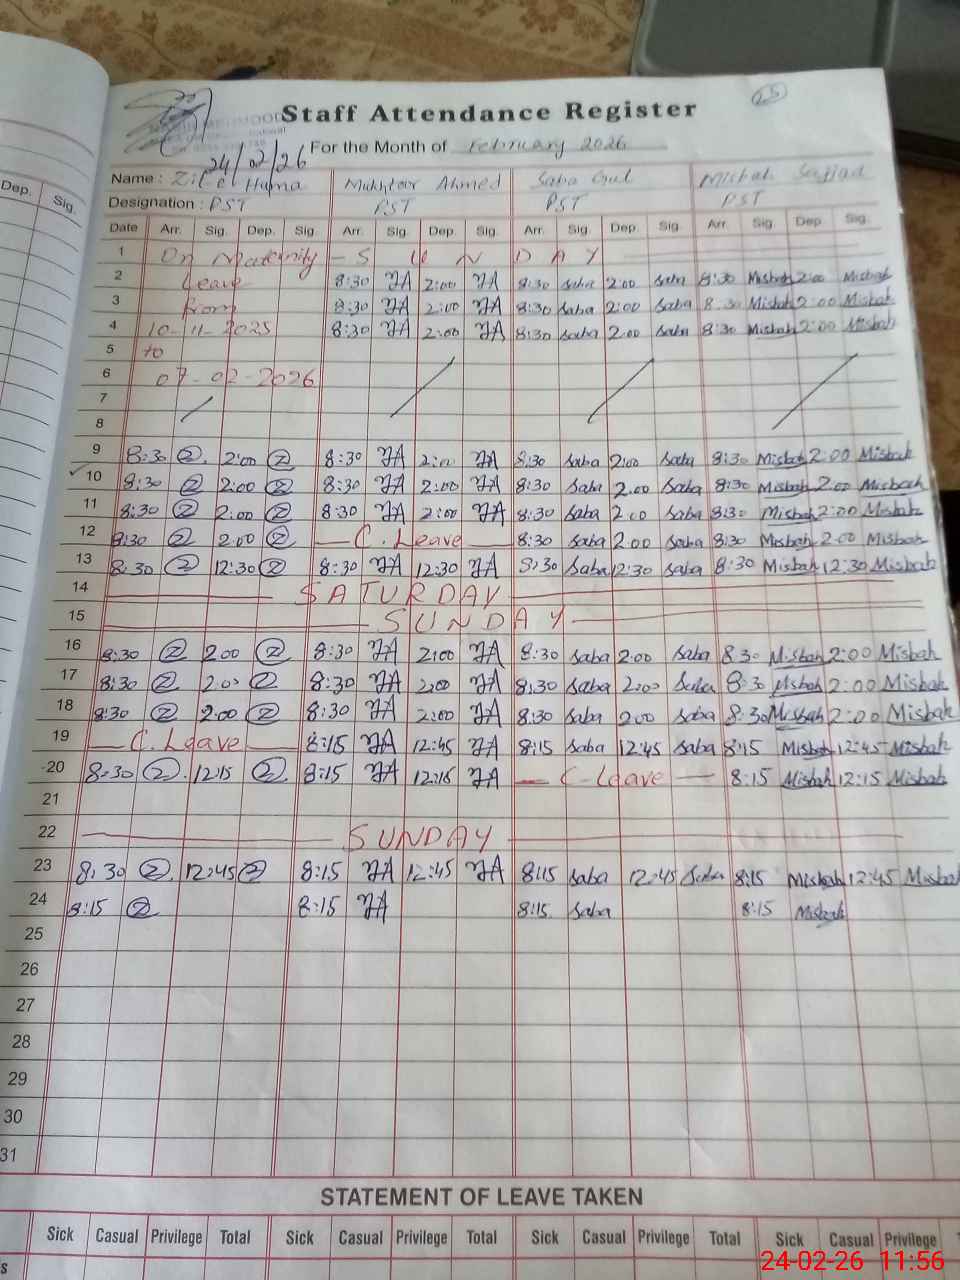 25
Staff Attendance Register
24/02/26
For the Month of February 2026
Name : Zil-e-Huma Mukhtar Ahmed Saba Gul Misbah Sajjad
Designation : PST PST PST PST
Date Arr. Sig. Dep. Sig. Arr. Sig. Dep. Sig. Arr. Sig. Dep. Sig. Arr. Sig. Dep. Sig.
1 On Maternity - S U N D A Y
2 Leave 8:30 JA 2:00 JA 8:30 saba 2:00 saba 8:30 Misbah 2:00 Misbah
3 from 8:30 JA 2:00 JA 8:30 saba 2:00 saba 8:30 Misbah 2:00 Misbah
4 10-11-2025 8:30 JA 2:00 JA 8:30 saba 2:00 saba 8:30 Misbah 2:00 Misbah
5 to
6 07-02-2026
7
8
9 8:30 Z 2:00 Z 8:30 JA 2:00 JA 8:30 saba 2:00 saba 8:30 Misbah 2:00 Misbah
10 8:30 Z 2:00 Z 8:30 JA 2:00 JA 8:30 saba 2:00 saba 8:30 Misbah 2:00 Misbah
11 8:30 Z 2:00 Z 8:30 JA 2:00 JA 8:30 saba 2:00 saba 8:30 Misbah 2:00 Misbah
12 8:30 Z 2:00 Z C.Leave 8:30 saba 2:00 saba 8:30 Misbah 2:00 Misbah
13 8:30 Z 12:30 Z 8:30 JA 12:30 JA 8:30 saba 12:30 saba 8:30 Misbah 12:30 Misbah
14 SATURDAY
15 SUNDAY
16 8:30 Z 2:00 Z 8:30 JA 2:00 JA 8:30 saba 2:00 saba 8:30 Misbah 2:00 Misbah
17 8:30 Z 2:00 Z 8:30 JA 2:00 JA 8:30 saba 2:00 saba 8:30 Misbah 2:00 Misbah
18 8:30 Z 2:00 Z 8:30 JA 2:00 JA 8:30 saba 2:00 saba 8:30 Misbah 2:00 Misbah
19 C.Leave 8:15 JA 12:45 JA 8:15 saba 12:45 saba 8:15 Misbah 12:45 Misbah
20 8:30 Z 12:15 Z 8:15 JA 12:15 JA C-Leave 8:15 Misbah 12:15 Misbah
21
22 SUNDAY
23 8:30 Z 12:45 Z 8:15 JA 12:45 JA 8:15 saba 12:45 saba 8:15 Misbah 12:45 Misbah
24 8:15 Z 8:15 JA 8:15 saba 8:15 Misbah
25
26
27
28
29
30
31
STATEMENT OF LEAVE TAKEN
Sick Casual Privilege Total Sick Casual Privilege Total Sick Casual Privilege Total Sick Casual Privilege
Dep. Sig.
24-02-26 11:56